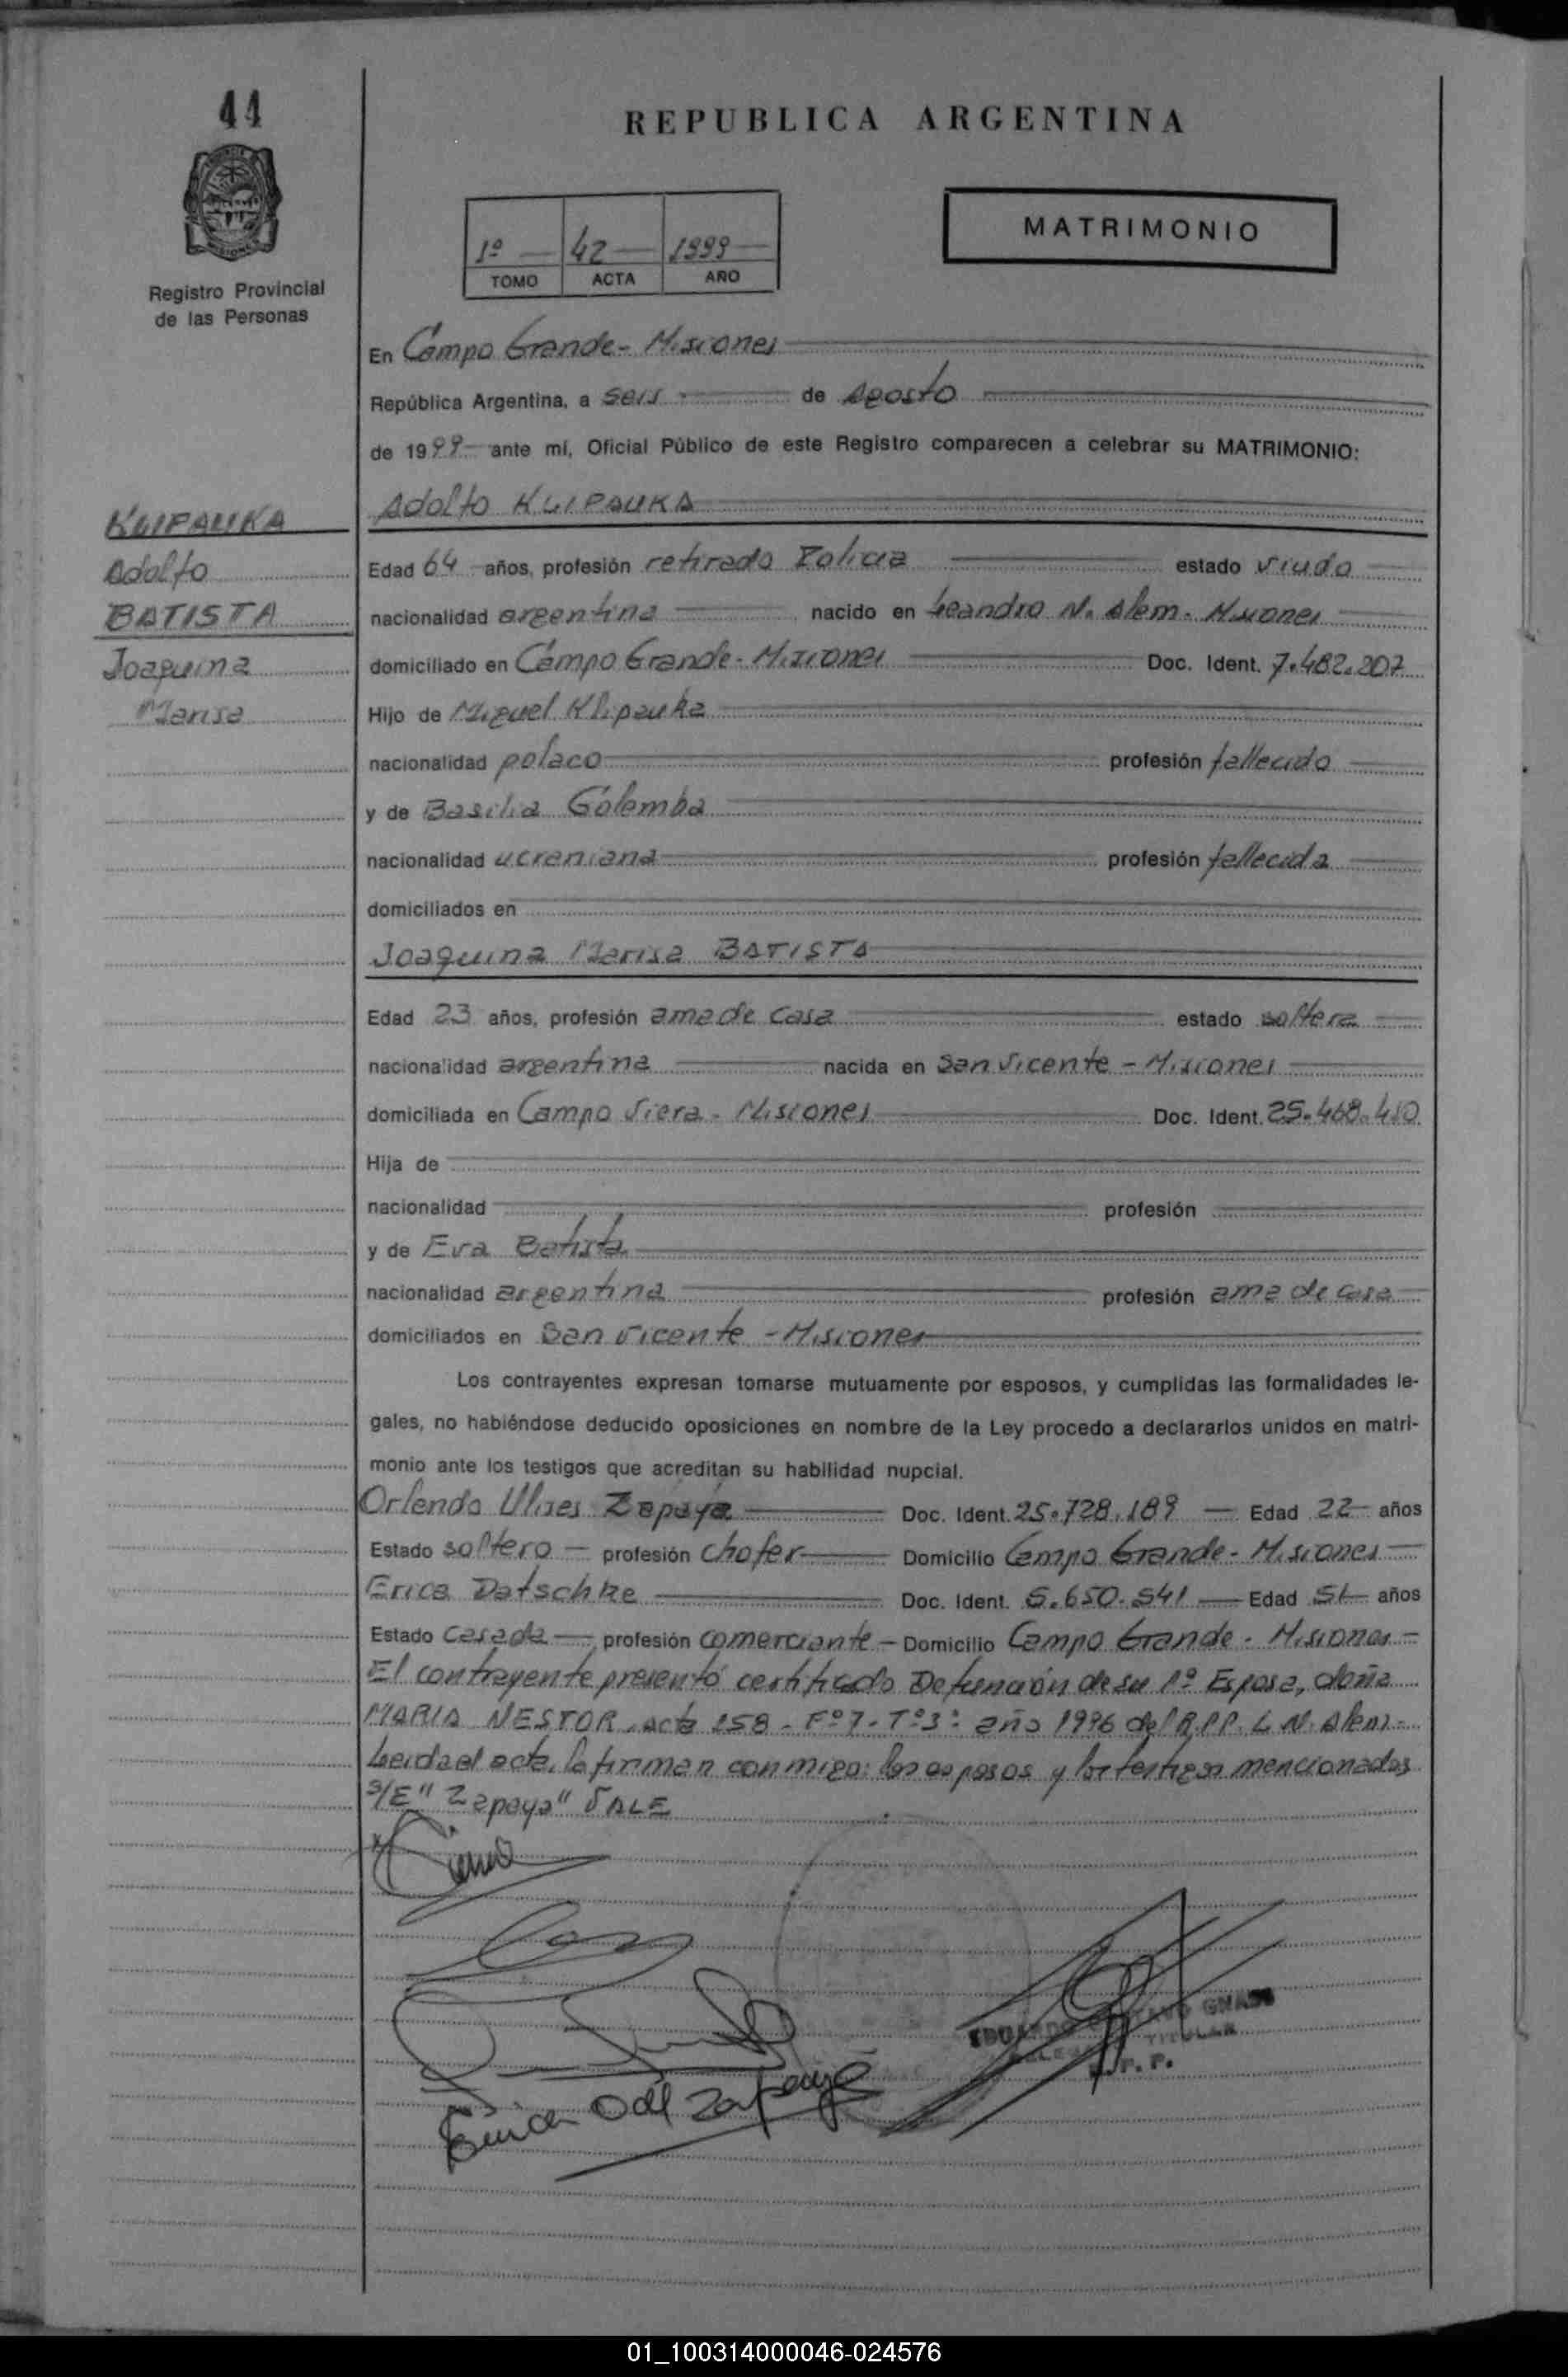 44
REPUBLICA ARGENTINA
MATRIMONIO
1º 42 1999
TOMO ACTA AÑO
Registro Provincial
de las Personas
En Campo Grande - Misiones
República Argentina, a seis de agosto
de 1999 ante mí, Oficial Público de este Registro comparecen a celebrar su MATRIMONIO:
KLIPAUKA
Adolfo
BATISTA
Joaquina
Marisa
Adolfo KLIPAUKA
Edad 64 años, profesión retirado Policia estado viudo
nacionalidad argentina nacido en Leandro N. Alem - Misiones
domiciliado en Campo Grande - Misiones Doc. Ident. 7.482.207
Hijo de Miguel Klipauka
nacionalidad polaco profesión fallecido
y de Basilia Golemba
nacionalidad ucraniana profesión fallecida
domiciliados en
Joaquina Marisa BATISTA
Edad 23 años, profesión ama de casa estado soltera
nacionalidad argentina nacida en San Vicente - Misiones
domiciliada en Campo Viera - Misiones Doc. Ident. 25.468.410
Hija de
nacionalidad profesión
y de Eva Batista
nacionalidad argentina profesión ama de casa
domiciliados en San Vicente - Misiones
Los contrayentes expresan tomarse mutuamente por esposos, y cumplidas las formalidades le-
gales, no habiéndose deducido oposiciones en nombre de la Ley procedo a declararlos unidos en matri-
monio ante los testigos que acreditan su habilidad nupcial.
Orlando Ulises Zapaya Doc. Ident. 25.728.189 Edad 22 años
Estado soltero profesión chofer Domicilio Campo Grande - Misiones
Erica Datschke Doc. Ident. 5.650.541 Edad 51 años
Estado casada profesión comerciante Domicilio Campo Grande - Misiones
El contrayente presentó certificado Defunción de su 1º Esposa, doña
MARIA NESTOR, acta 158 - Fº 7 - Tº 3º año 1996 del R.P.P. L. N. Alem -
Leida el acta, la firman conmigo: los esposos y los testigos mencionados
S/E "Zapaya" VALE
EDUARDO GNASS
TITULAR
R.P.P.
01_100314000046-024576